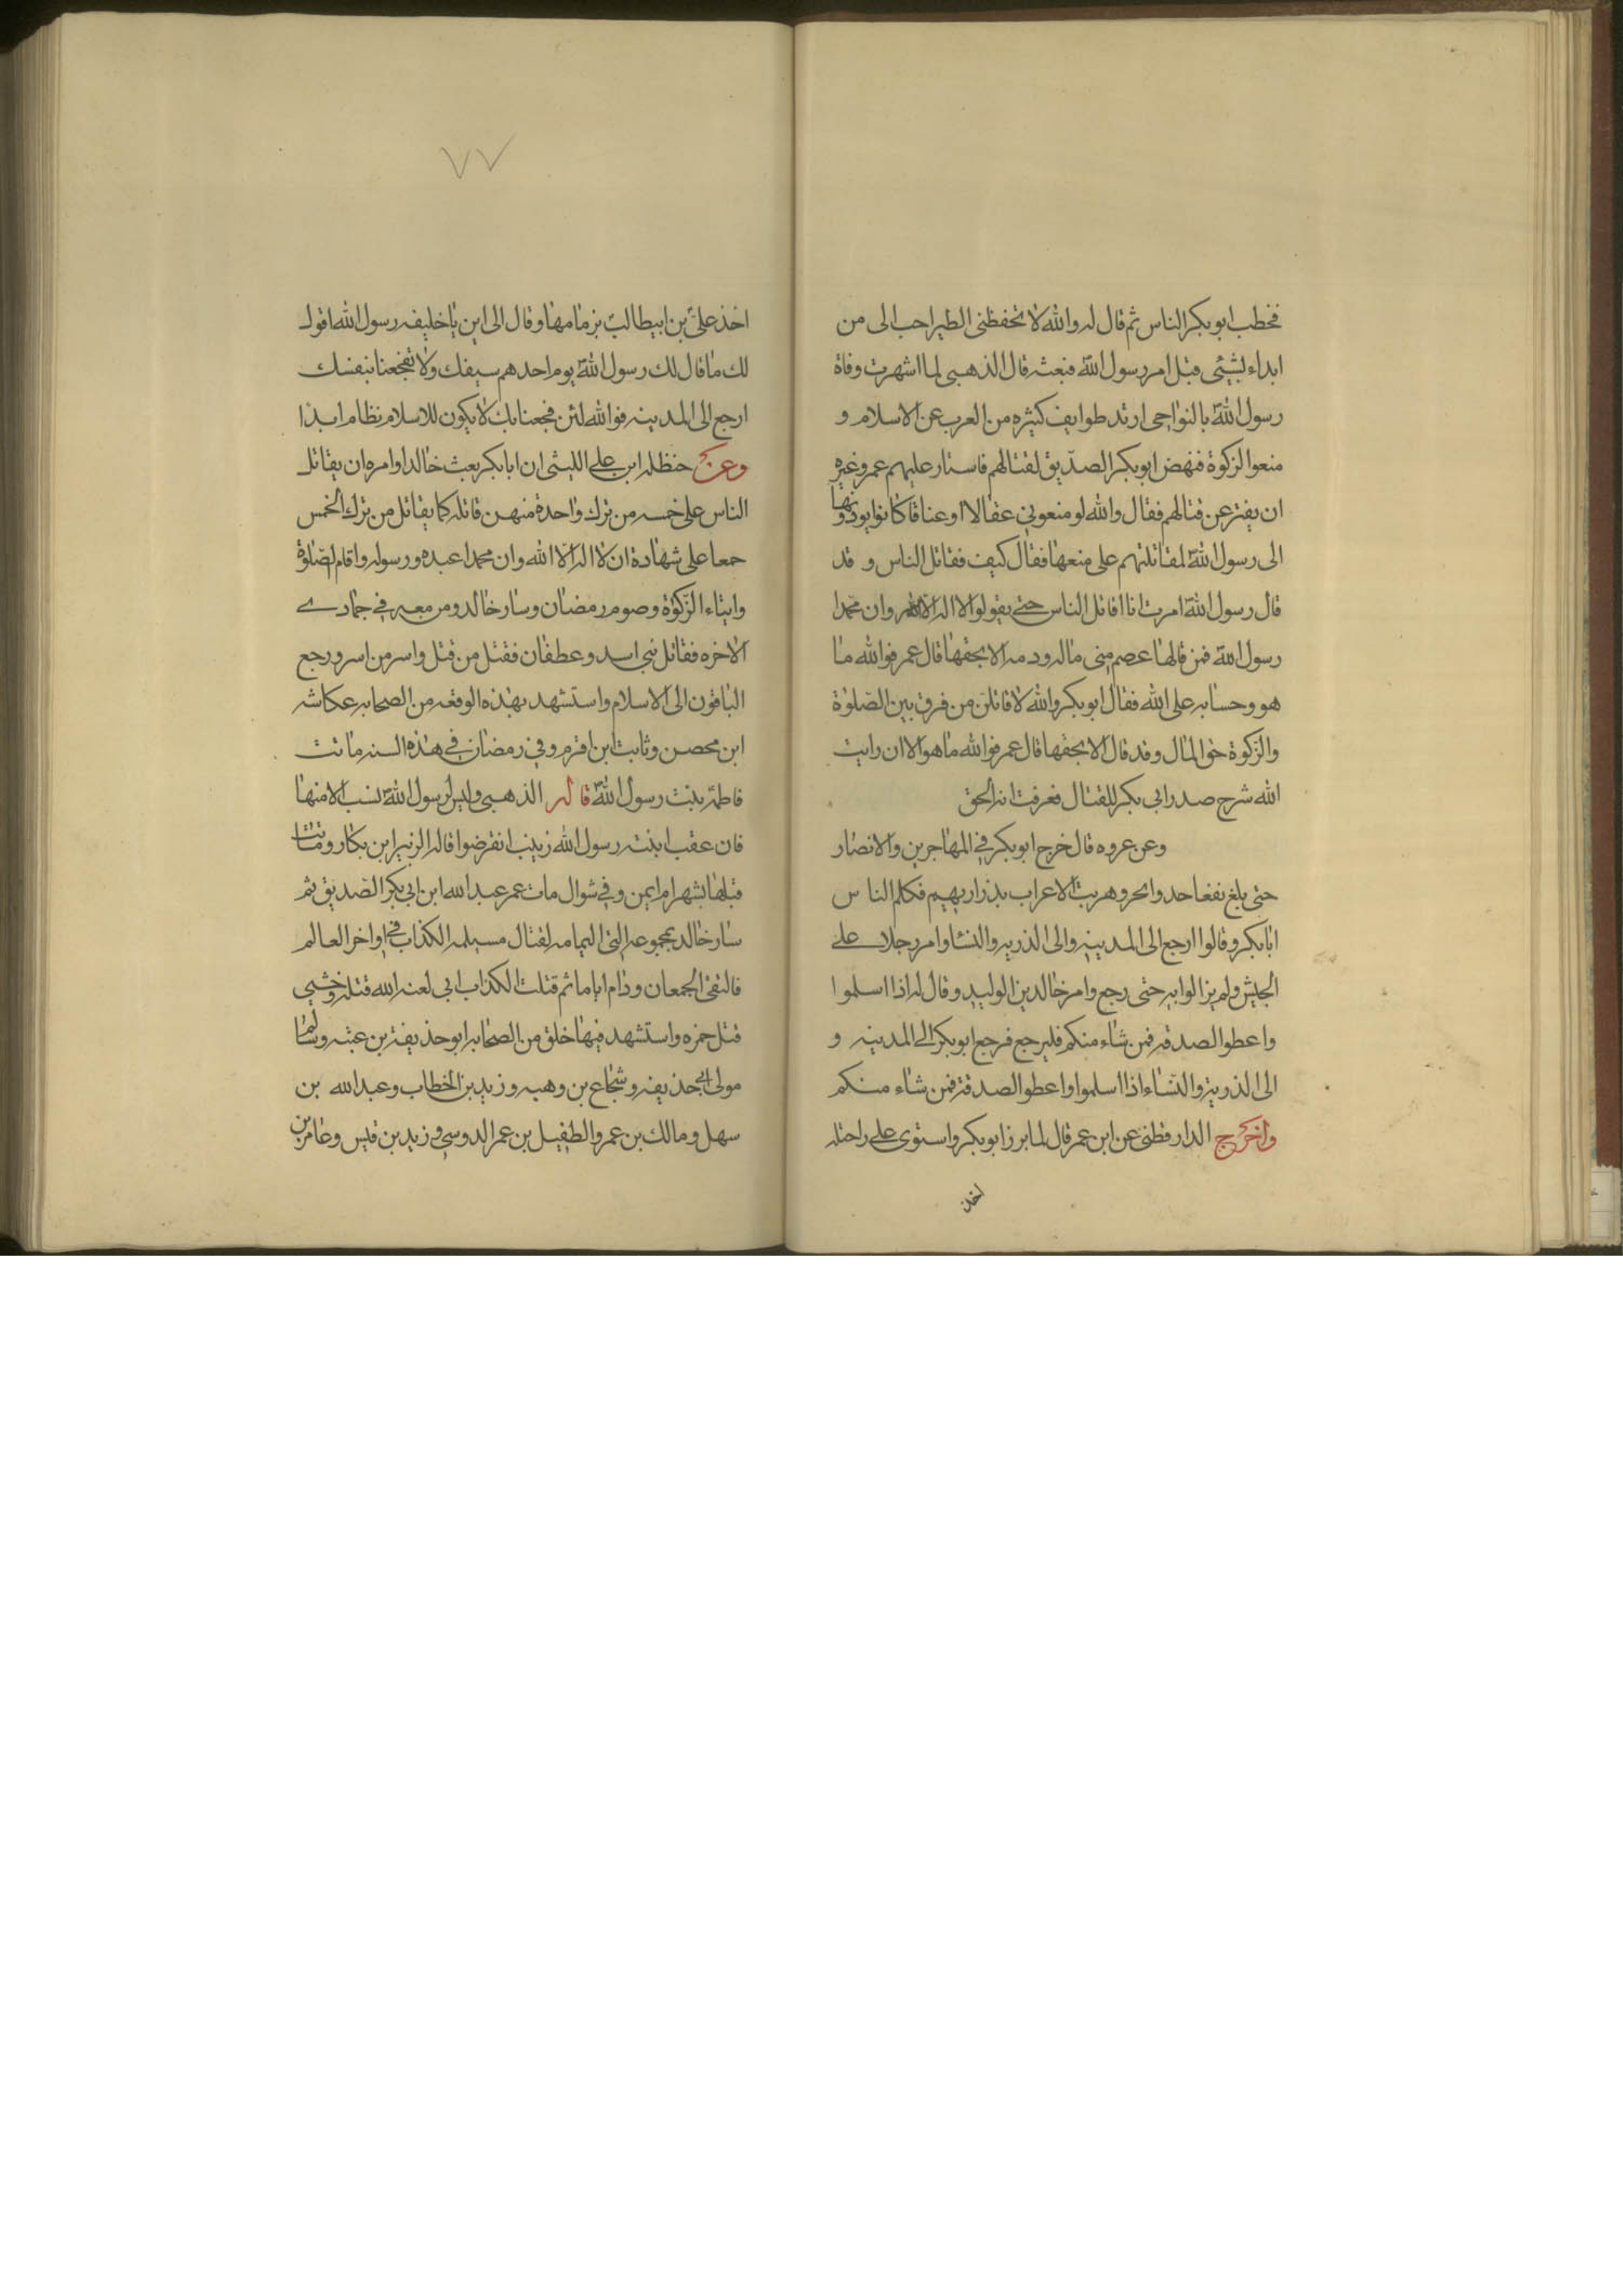 فخطب ابو بكر الناس ثم قال له والله لا تخفظنى الطير احب الى من
ابداء لشيئى قبل امر رسول الله فبعثه قال الذهبى لما اشهرت وفاة
رسول الله بالنواحى ارتد طوايف كثيره من العرب عن الاسلام و
منعوا الزكوة فنهض ابو بكر الصديق لقتالهم فاستار عليهم عمر وغيره
ان يفتر عن قتالهم فقال والله لو منعونى عقالا او عناقا كانوا يودونها
الى رسول الله لمقاتلتهم على منعها فقال كيف فقاتل الناس و قد
قال رسول الله امرت انا اقاتل الناس حتى يقولوا لا اله الا الله وان محمدا
رسول الله فمن قالها عصم منى ماله ودمه الا بحقها قال عمر فوالله ما
هو وحسابه على الله فقال ابو بكر والله لاقاتلن من فرق بين الصلوة
والزكوة حق المال وقد قال الا بحقها قال عمر فوالله ما هو الا ان رايت
الله شرح صدر ابى بكر للقتال فعرفت انه الحق
وعن عروه قال خرج ابو بكر فى المهاجرين والانصار
حتى بلغ نقعا حدو انحر وهربت الاعراب بذراريهم فكلم الناس
ابا بكر و قالوا ارجع الى المدينه والى الذريه والنشا وامر رجلا على
الجيش ولم يزالوا به حتى رجع وامر خالد بن الوليد وقال له اذا اسلموا
واعطوا الصدقه فمن شاء منكم فليرجع فرجع ابو بكر الى المدينه و
الى الذرية والنساء اذا اسلموا واعطوا الصدقة فمن شاء منكم
واخرج الدارقطنى عن ابن عمر قال لما برز ابو بكر واستوى على راحته
اخذ
٧٧
اخذ على بن ابيطالب بزمامها وقال الى اين يا خليفه رسول الله اقول
لك ما قال لك رسول الله يوم احد هم سيفك ولا تفجعنا بنفسك
ارجع الى المدينه فوالله لئن فجعنا بك لا يكون للاسلام نظام ابدا
وعن حنظله ابن على الليثى ان ابا بكر بعث خالدا وامره ان يقاتل
الناس على خمسه من ترك واحدة منهن قاتله كما يقاتل من ترك الخمس
جمعا على شهادة ان لا اله الا الله وان محمدا عبده ورسوله واقام الصلوة
وايتاء الزكوة وصوم رمضان وسار خالد ومن معه فى جمادى
الاخره فقاتل بنى اسد وعطفان فقتل من قتل واسر من اسر ورجع
الباقون الى الاسلام واستشهد بهذه الوقعه من الصحابه عكاشه
ابن محصن وثابت ابن اقرم وفى رمضان فى هذه السنه ماتت
فاطمة بنت رسول الله قاله الذهبى وليس لرسول الله نسب الا منها
فان عقب ابنته رسول الله زينب انقرضوا قاله الزبير ابن بكار وماتت
قبلها بشهر ام ايمن وفى شوال مات عمر عبد الله ابن ابى بكر الصديق ثم
سار خالد بمجموعه التى اليمامه لقتال مسيلمه الكذاب فى اواخر العالم
فالتقى الجمعان ودام اياما ثم قتلت الكذاب ابى لعنه الله قتله وحشى
قتل حمزه واستشهد فيها خلق من الصحابه ابو حذيفة بن عتبه وسالم
مولى ابى حذيفه وشجاع بن وهبه وزيد بن الخطاب وعبد الله بن
سهل ومالك بن عمر والطفيل بن عمر الدوسى وزيد بن قيس وعامر بن